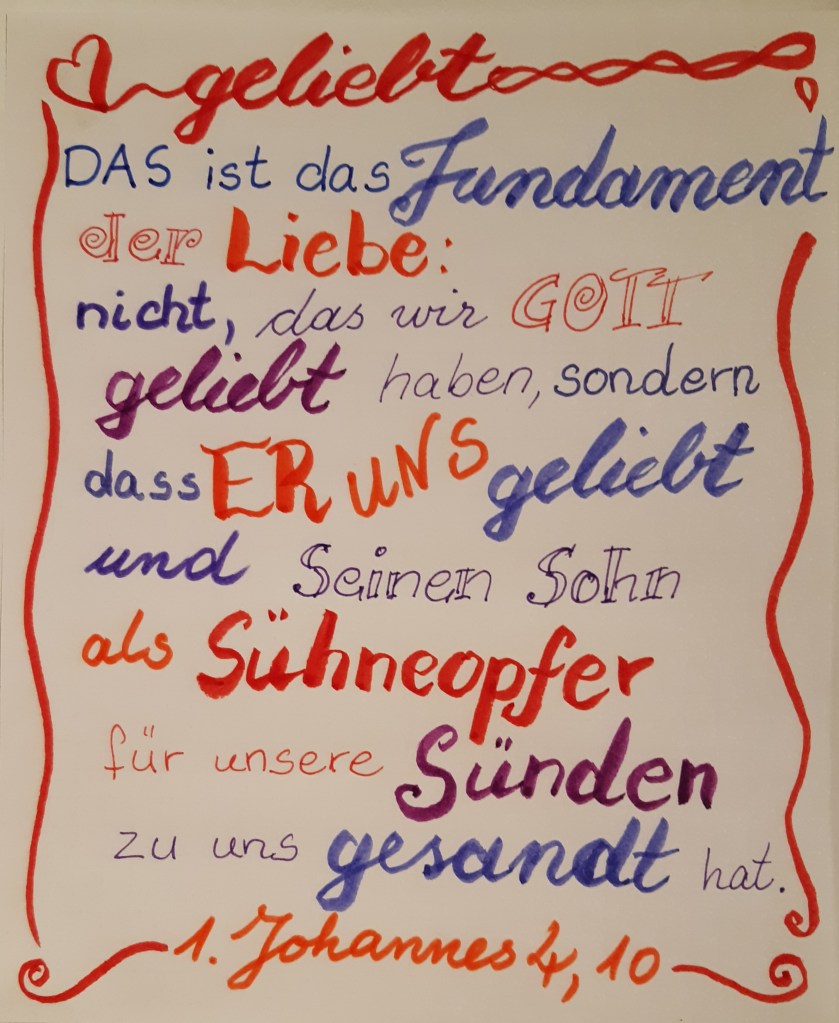 geliebt
DAS ist das Fundament
der Liebe:
nicht, das wir GOTT
geliebt haben, sondern
dass ER UNS geliebt
und Seinen Sohn
als Sühneopfer
für unsere Sünden
zu uns gesandt hat.
1. Johannes 4, 10